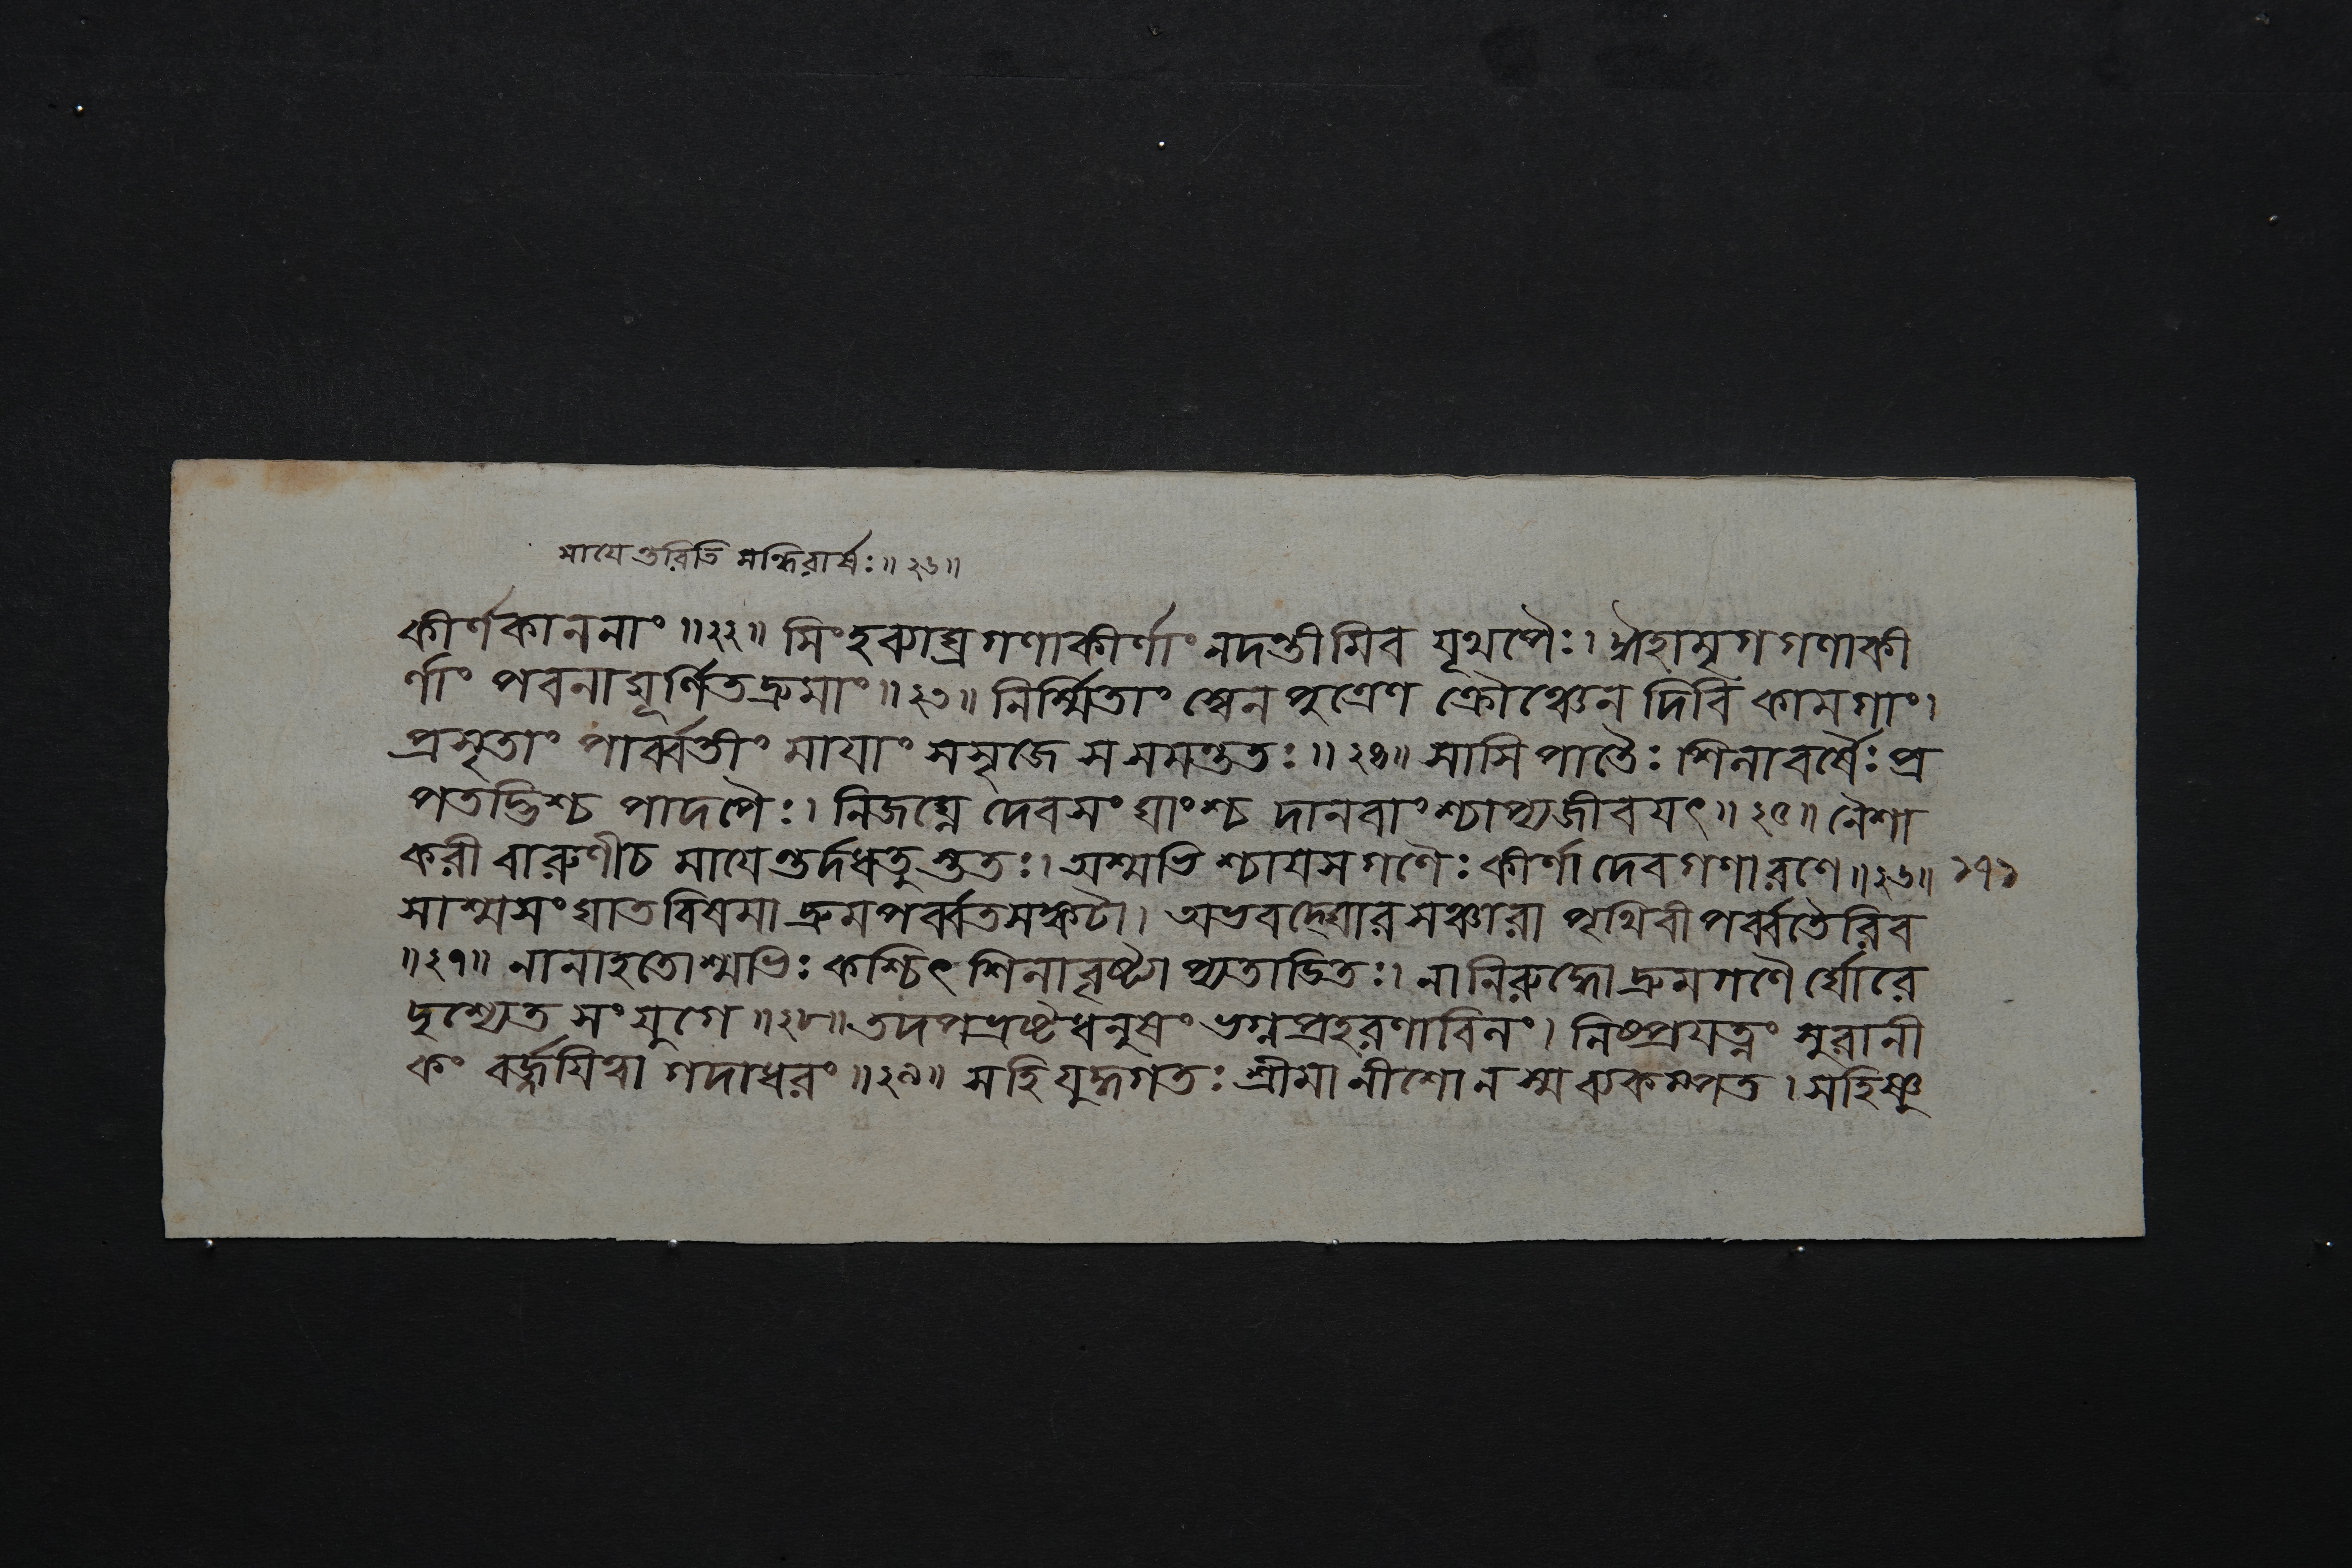 মায়েণ্ডরিতি সন্ধিরার্ষঃ॥২৬॥
কীর্ণকাননাং॥২২॥ সিংহব্যাঘ্রগণাকীর্ণাং নদন্তীমিব যূথপৈঃ। ঈহামৃগগণাকী
র্ণাং পবনাঘূর্ণিতদ্রুমাং॥২৩॥ নির্ম্মিতাং স্বেন পুত্রেণ ক্রৌঞ্চেন দিবি কামগাং।
প্রসৃতাং পার্ব্বতীং মায়াং সসৃজে স সমন্ততঃ॥২৪॥ সাসি পাতৈঃ শিলাবর্ষৈঃ প্র
পতদ্ভিশ্চ পাদপৈঃ। নিজঘ্নে দেবসংঘাংশ্চ দানবাংশ্চাপ্যজীবয়ৎ॥২৫॥ নৈশা
করী বারুণীচ মায়েণ্ডর্দধতুস্ততঃ। অশ্মভিশ্চায়সগণৈঃ কীর্ণা দেবগণারণে॥২৬॥ ১৭১
সাশ্মসংঘাতবিষমা দ্রুমপর্ব্বতসঙ্কটা। অভবদ্ঘোরসঞ্চারা পৃথিবী পর্ব্বতৈরিব
॥২৭॥ নানাহতোশ্মভিঃ কশ্চিৎ শিলাবৃষ্ট্যা প্যতাডিতঃ। নানিরুদ্ধো দ্রুমগণৈর্ঘোরে
দৃশ্যেত সংযুগে॥২৮॥ তদপভ্রষ্টধনুষং ভগ্নপ্রহরণাবিলং। নিষ্প্রযত্নং সুরানী
কং বর্জ্জয়িত্বা গদাধরং॥২৯॥ সহি যুদ্ধগতঃ শ্রীমানীশোন স্ম ব্যকম্পত। সহিষ্ণু